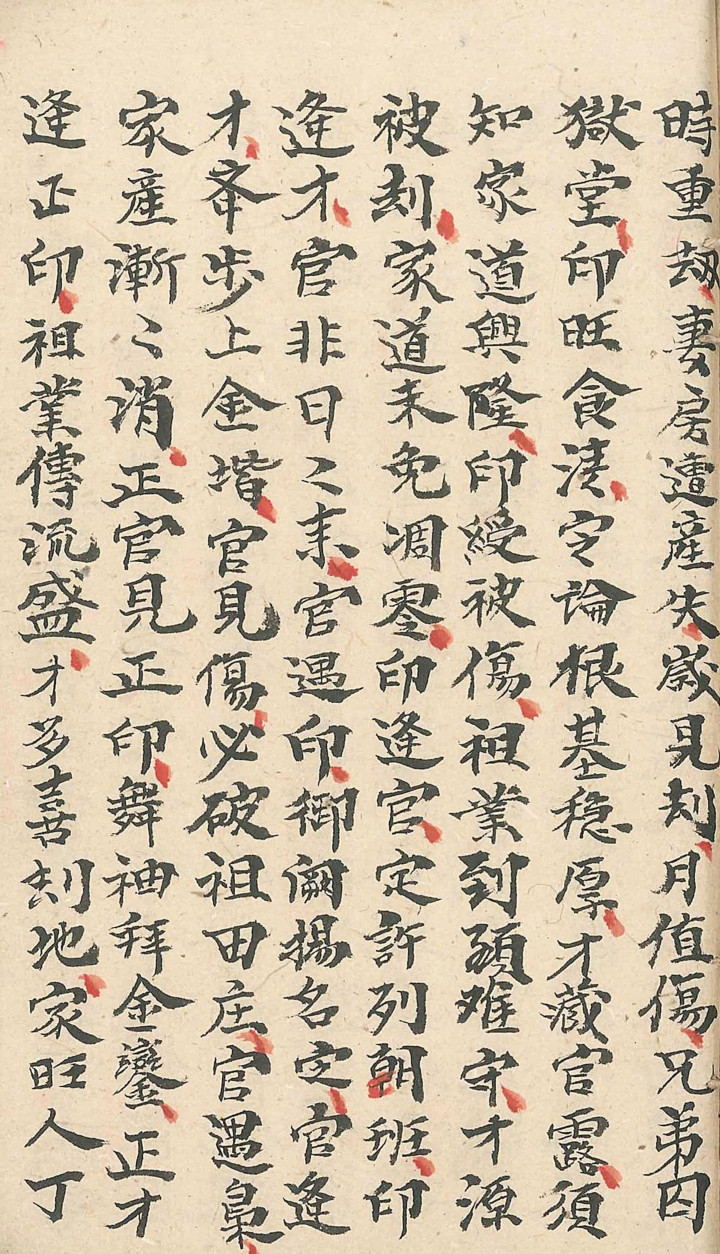 時重劫妻房遭產失歲見刦月值傷兄弟囚
獄堂印旺食清字論根基穩厚才藏官露須
知家道興隆印綬被傷祖業到頭难守才源
被刦家道未免凋零印逢官定許列朝班印
逢才官非日〻來官遇印御闕揚名定官逢
才夆步上金堦官見傷必破祖田庄官遇梟
家產漸〻消正官見正印舞袖拜金鑾正才
逢正印祖業傳流盛才多喜刦地家旺人丁